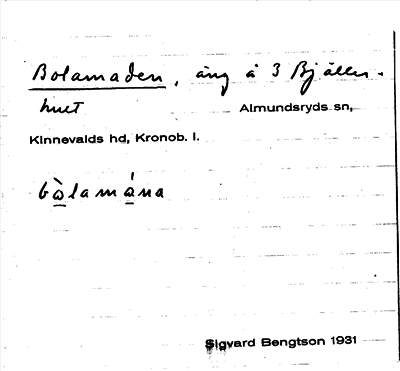 Bolamaden, äng å 3 Bjäller-
hult Almundsryds sn,
Kinnevalds hd, Kronob. l.
bòlamána
Sigvard Bengtson 1931